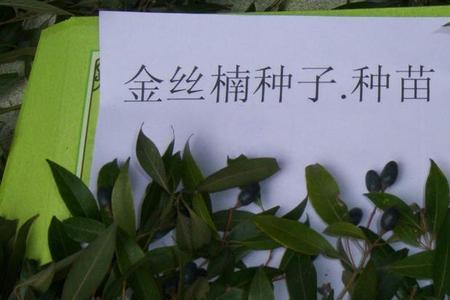 金丝楠种子.种苗